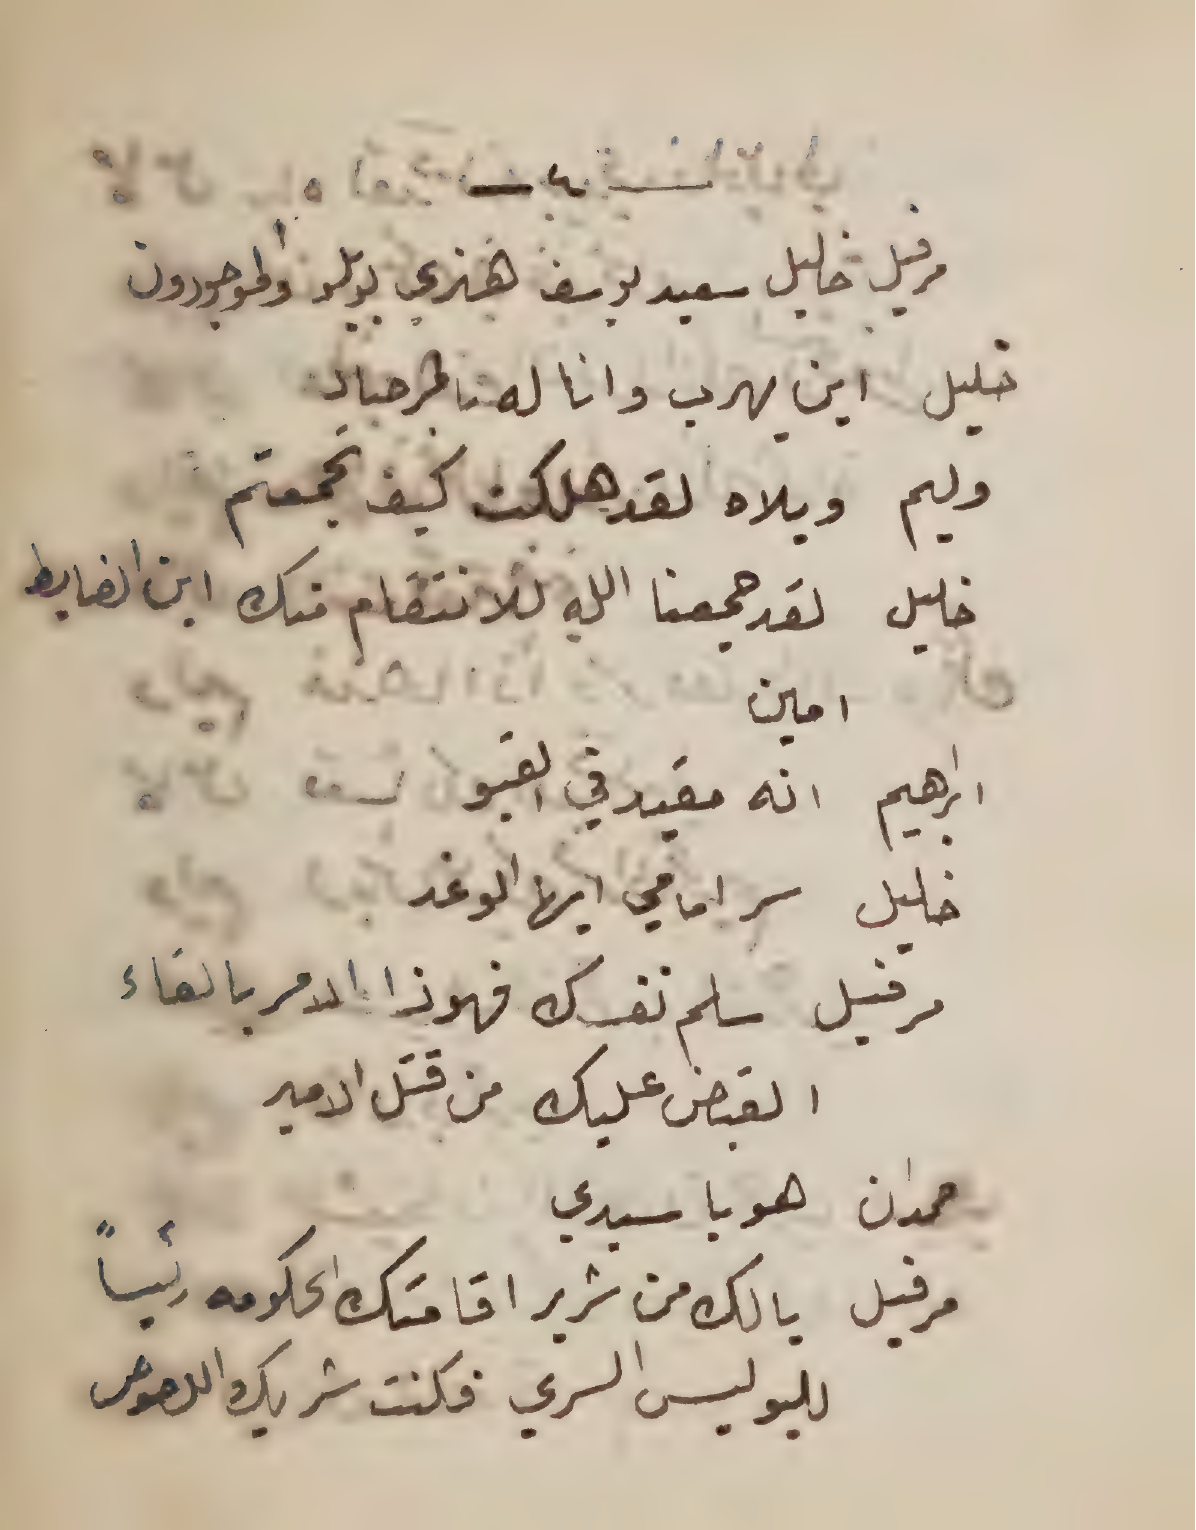 — ٤ —
مرفيل خليل سعيد يوسف هنري بوبلو والموجودون
خليل اين يهرب وانا له بالمرصاد
وليم ويلاه لقد هلكت كيف تجمعتم
خليل لقد جمعنا الله للانتقام منك اين الضابط
امين
ابرهيم انه مقيد في القبو
خليل سر امامي ايها الوغد
مرفيل سلم نفسك فهوذا الامر بالقاء
القبض عليك من قتل الامير
حمدان هو يا سيدي
مرفيل يالك من شرير اقامتك الحكومه رئيساً
للبوليس السري فكنت شريك اللصوص